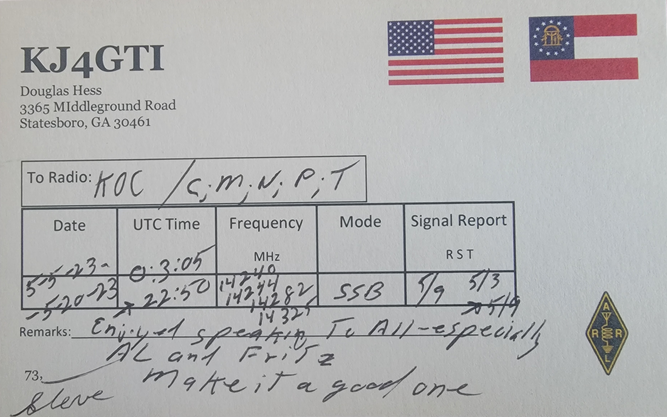 KJ4GTI
Douglas Hess
3365 MIddleground Road
Statesboro, GA 30461
To Radio: KOC /C;M;N;P;T
Date UTC Time Frequency MHz Mode Signal Report R S T
5-5-23- 0:3:05 14240
14244 5/9 5/3
-5-20-23 → 22:50 14282 SSB → 5/9
1432
Remarks: Enjoyed speaking To All-especially
AL and Fritz
73, Make it a good one
Steve
A
R R
L